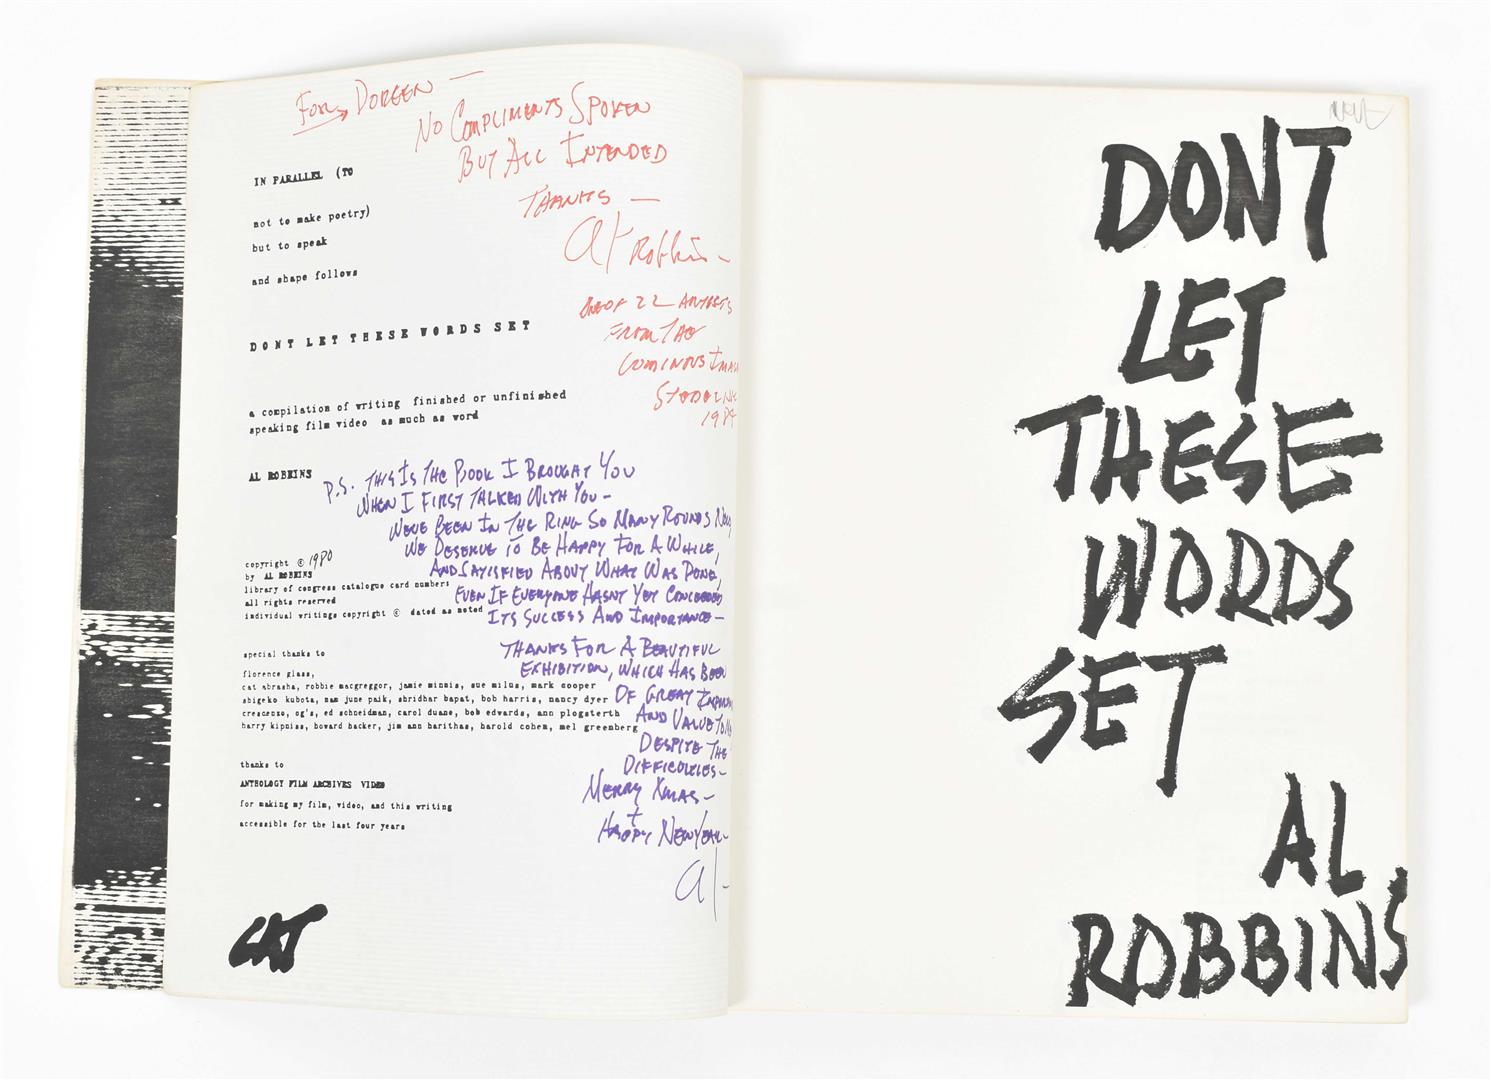 For Doreen —
No Compliments Spoken
But All Intended
Thanks —
Al Robbins —
One of 22 Artists
From The
Luminous Image
198
IN PARALLEL (TO
not to make poetry)
but to speak
and shape follows
DONT LET THESE WORDS SET
a compilation of writing finished or unfinished
speaking film video as much as word
AL ROBBINS
P.S. This Is The Book I Brought You
When I First Talked With You —
Weve Been In The Ring So Many Rounds Now,
We Deserve To Be Happy For A While,
And Satisfied About What Was Done,
Even If Everyone Hasnt Yet Conceeded
Its Success And Importance —
Thanks For A Beautiful
Exhibition, Which Has Been
Of Great
And Value To
Despite The
Difficulties —
Merry Xmas —
+
Happy New Year —
Al —
copyright © 1980
by AL ROBBINS
library of congress catalogue card number:
all rights reserved
individual writings copyright © dated as noted
special thanks to
florence glass,
cat abrasha, robbie macgreggor, jamie minnis, sue milus, mark cooper
shigeko kubota, nam june paik, shridhar bapat, bob harris, nancy dyer
crescenzo, og's, ed schneidman, carol duane, bob edwards, ann plogsterth
barry kipniss, howard backer, jim ann barithas, harold cohen, mel greenberg
thanks to
ANTHOLOGY FILM ARCHIVES VIDEO
for making my film, video, and this writing
accessible for the last four years
CAT
DONT
LET
THESE
WORDS
SET
AL
ROBBINS